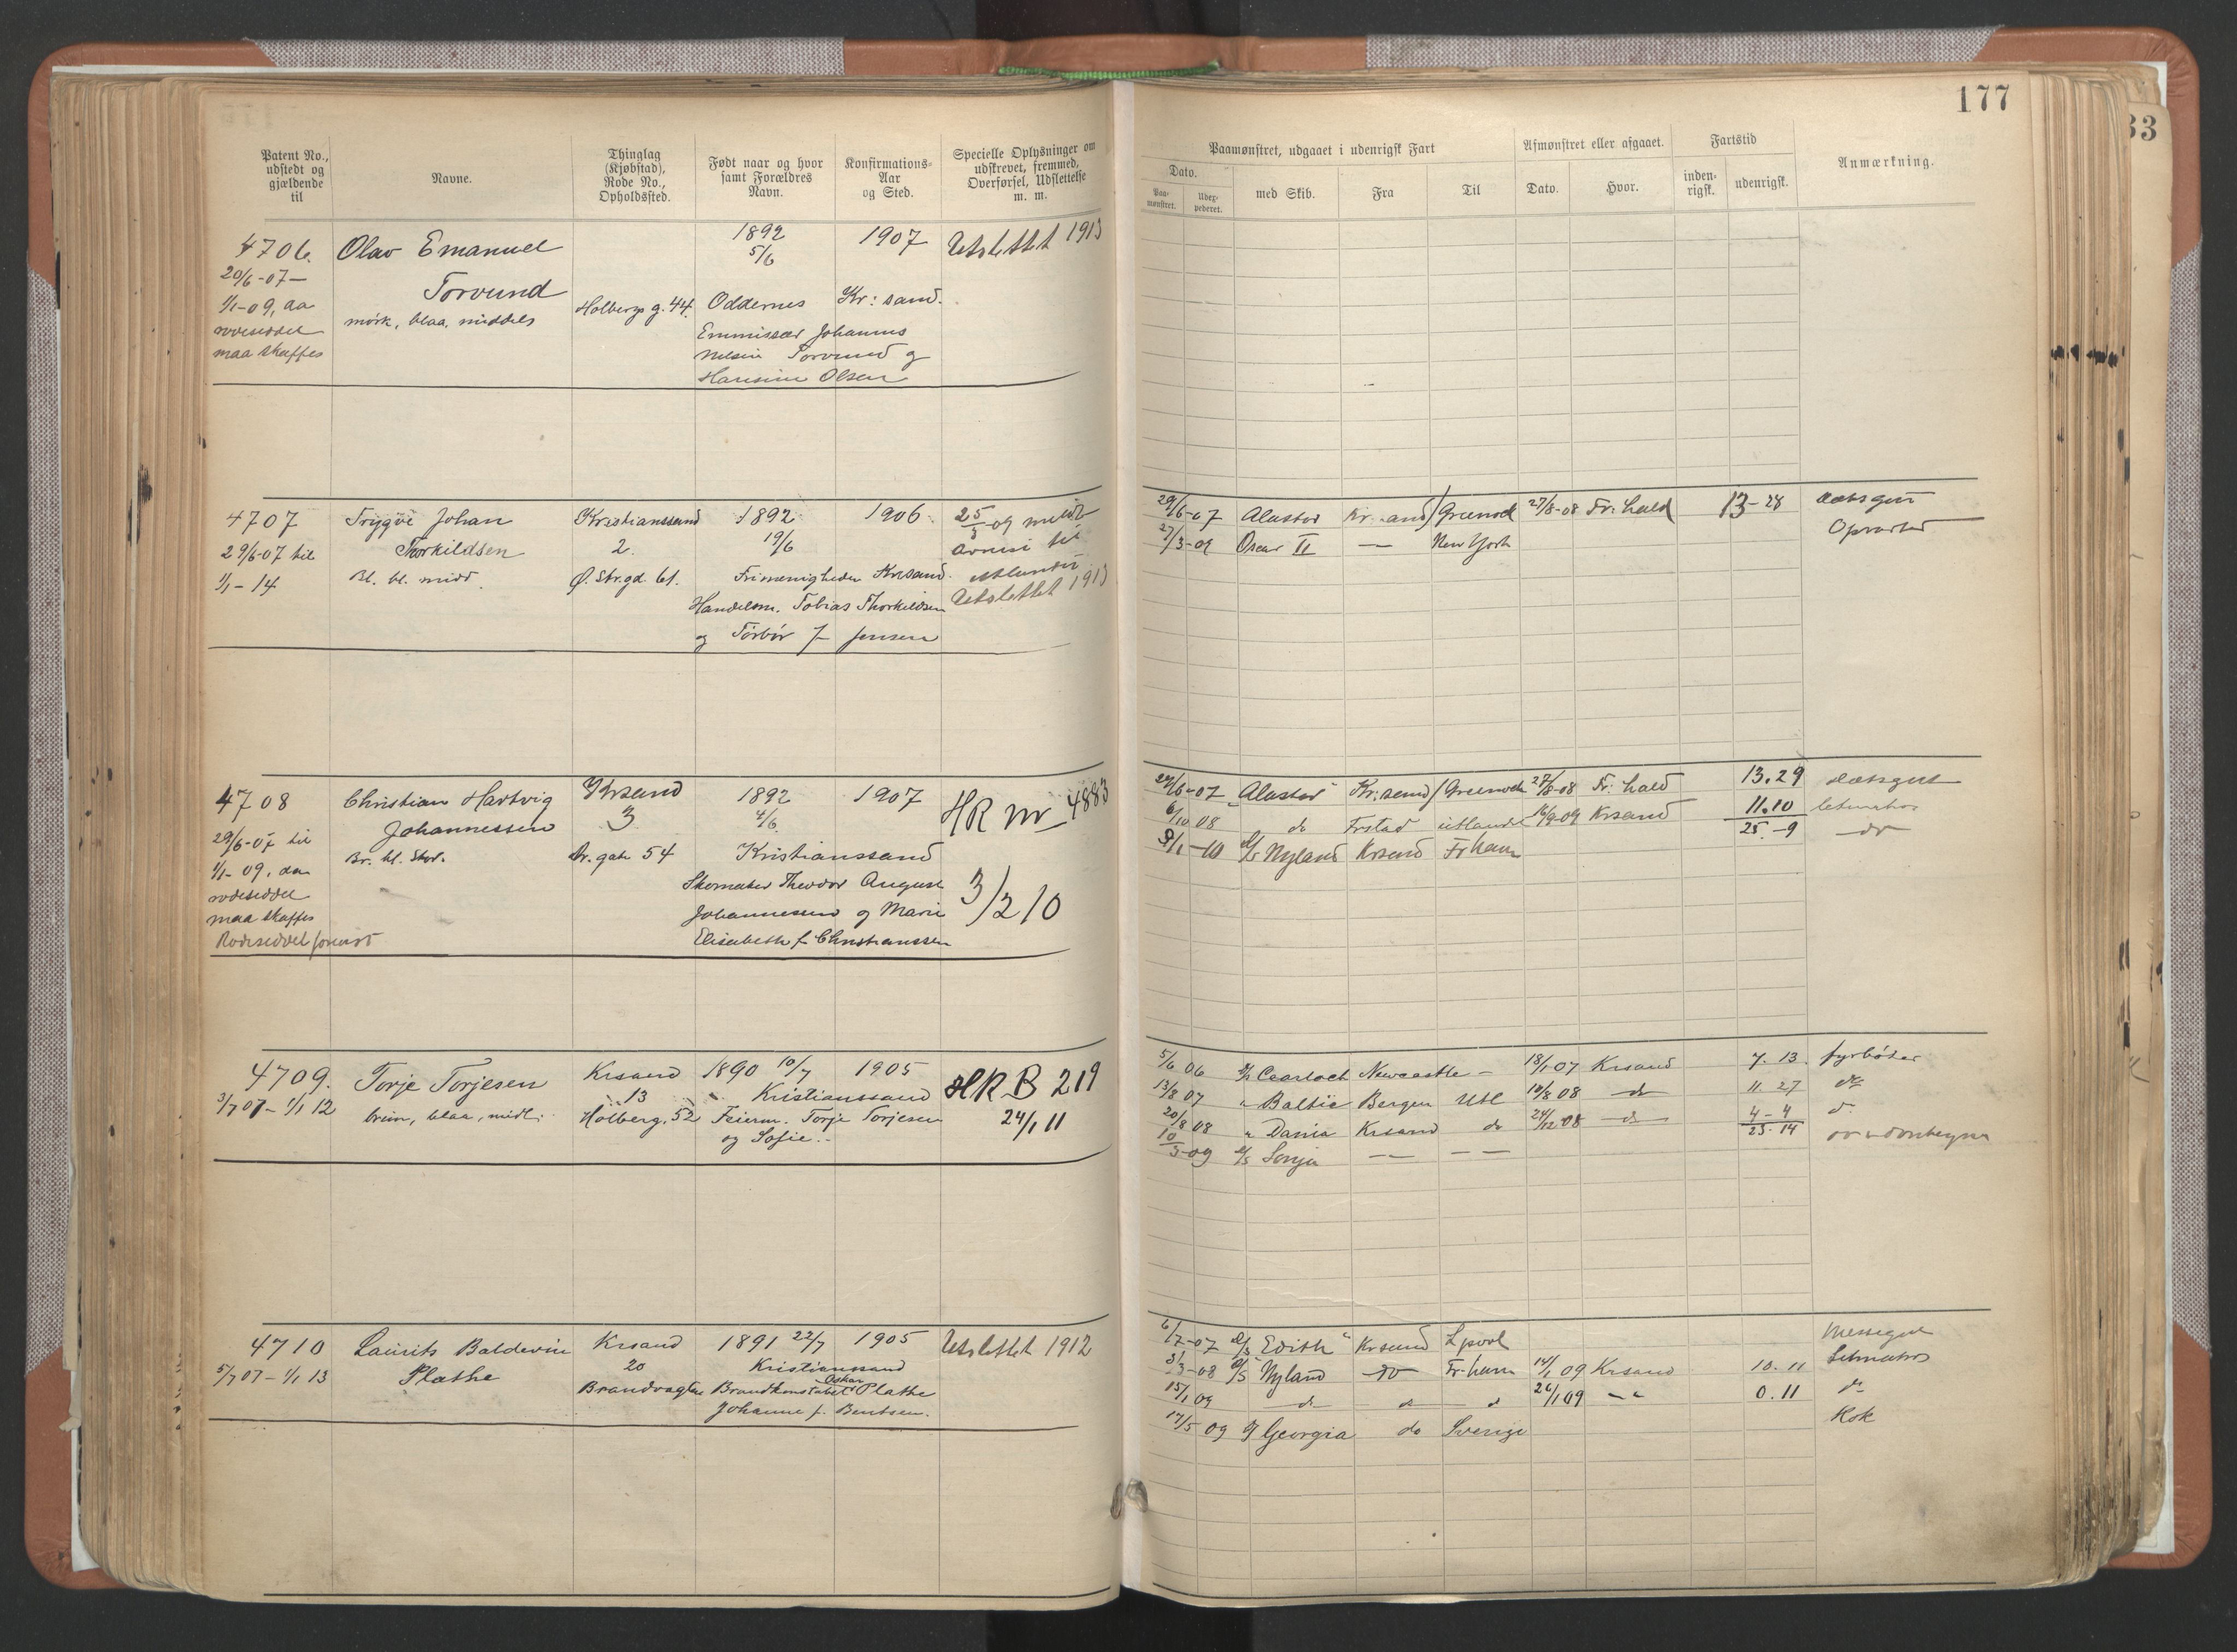 177
33
Patent No., udstedt og gjældende til
Navne.
Thinglag (Kjøbstad), Rode No., Opholdssted.
Født naar og hvor samt Forældres Navn.
Konfirmations-Aar og Sted.
Specielle Oplysninger om udskrevet, fremmed, Overførsel, Udslettelse m. m.
Paamønstret, udgaaet i udenrigsk Fart
Afmønstret eller afgaaet.
Fartstid
Anmærkning.
Dato.
Paa-mønstret.
med Skib.
Fra
Til
Dato.
Hvor.
inden-rigsk.
udenrigsk.
4706. Olav Emanuel 1892 1907 Utslettet 1913
20/6-07- 5/6
Torvund
1/1-09, aa Holbergs g. 44. Oddernes Kr:sand.
rodeseddel mörk, blaa, middels Emmissær Johannes
maa skaffes Nelsin Torvund g
Hansine Olsen
4707 Trygve Johan Kristianssand 1892 1906 25/3-09 meldt
29/6-07 til Thorkildsen 2. 19/6
1/1-14 Bl. bl. midd. Ø. Str.gd. 61. Frimenigheden Krsand.
Handelsm. Tobias Thorkildsen Utslettet 1913
og Torbör f Jensen
29/6-07 Alastor Kr.sand Greenock 27/8-08 Fr:hald 13-28 dæksgut
27/3-09 Oscar II — New York Opvarter
4708 Christian Hartvig Krsand 1892 1907 HR Nr 4883
29/6-07 til Johannessen 3 4/6
1/1-09, aa Br. bl. Stor. Dr. gate 54 Kristianssand
rodeseddel Skomaker Theodor August 3/2 10
maa skaffes Johannessen g Marie
Rodeseddel forevist Elisabeth f. Christianssen
29/6-07 "Alastor" Kr:sand Greenock 27/8-08 Fr:hald 13.29 dæksgut
6/10 08 do Frstad utlandet 16/9-09 Krsand 11.10 letmatros
8/1-10 D/S Nyland Krsand Frhavn 25.-9 do
4709. Torje Torjesen Krsand 1890 10/7 1905 HR B 219
3/7 07-1/1 12 13 Kristianssand
brun, blaa, midl. Holberg. 52 Feierm. Torje Torjesen 24/1 11
og Sofie.-
5/6 06 Newcastle - 18/1 07 Krsand 7.13. fyrböter
13/8 07 " Baltic Bergen Utl 18/8 08 do 11.27 do
20/8 08 " Dania Krsand do 24/12 08 do 4-4 d.
10/3-09 D/S Sonja — — 23.14
4710 Laurits Baldevin Krsand 1891 22/7 1905 Utslettet 1912
5/7 07-1/1 13 Plathe 20 Kristianssand
Brandvagten Brandkonstabel Oskar Plathe
Johanne f. Bentsen.
6/7-07 D/S "Edith" Krsand Lpool Messegut
3/3-08 D/S Nyland do Fr-havn 14/1 09 Krsand 10.11 Letmatros
15/1 09 do do d 26/1 09 -"- 0.11 do
17/5 09 Georgia do Sverige Kok